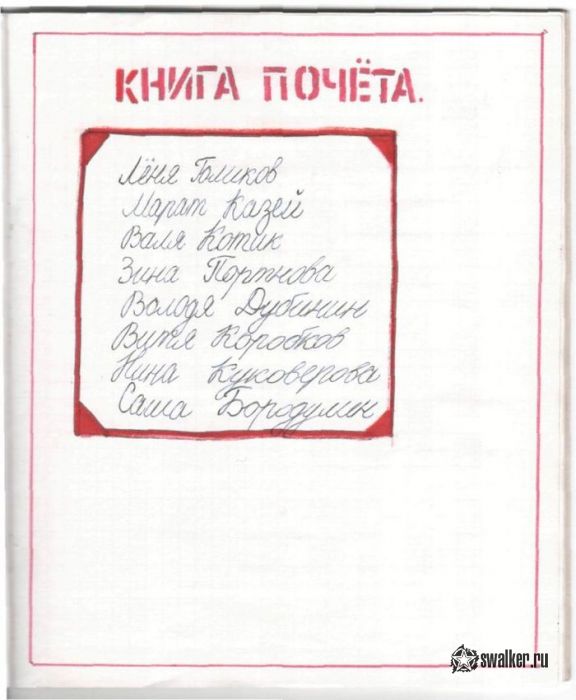 КНИГА ПОЧЁТА.
Лёня Голиков
Марат Казей
Валя Котик
Зина Портнова
Володя Дубинин
Витя Коробков
Нина Куковерова
Саша Бородулин
swalker.ru